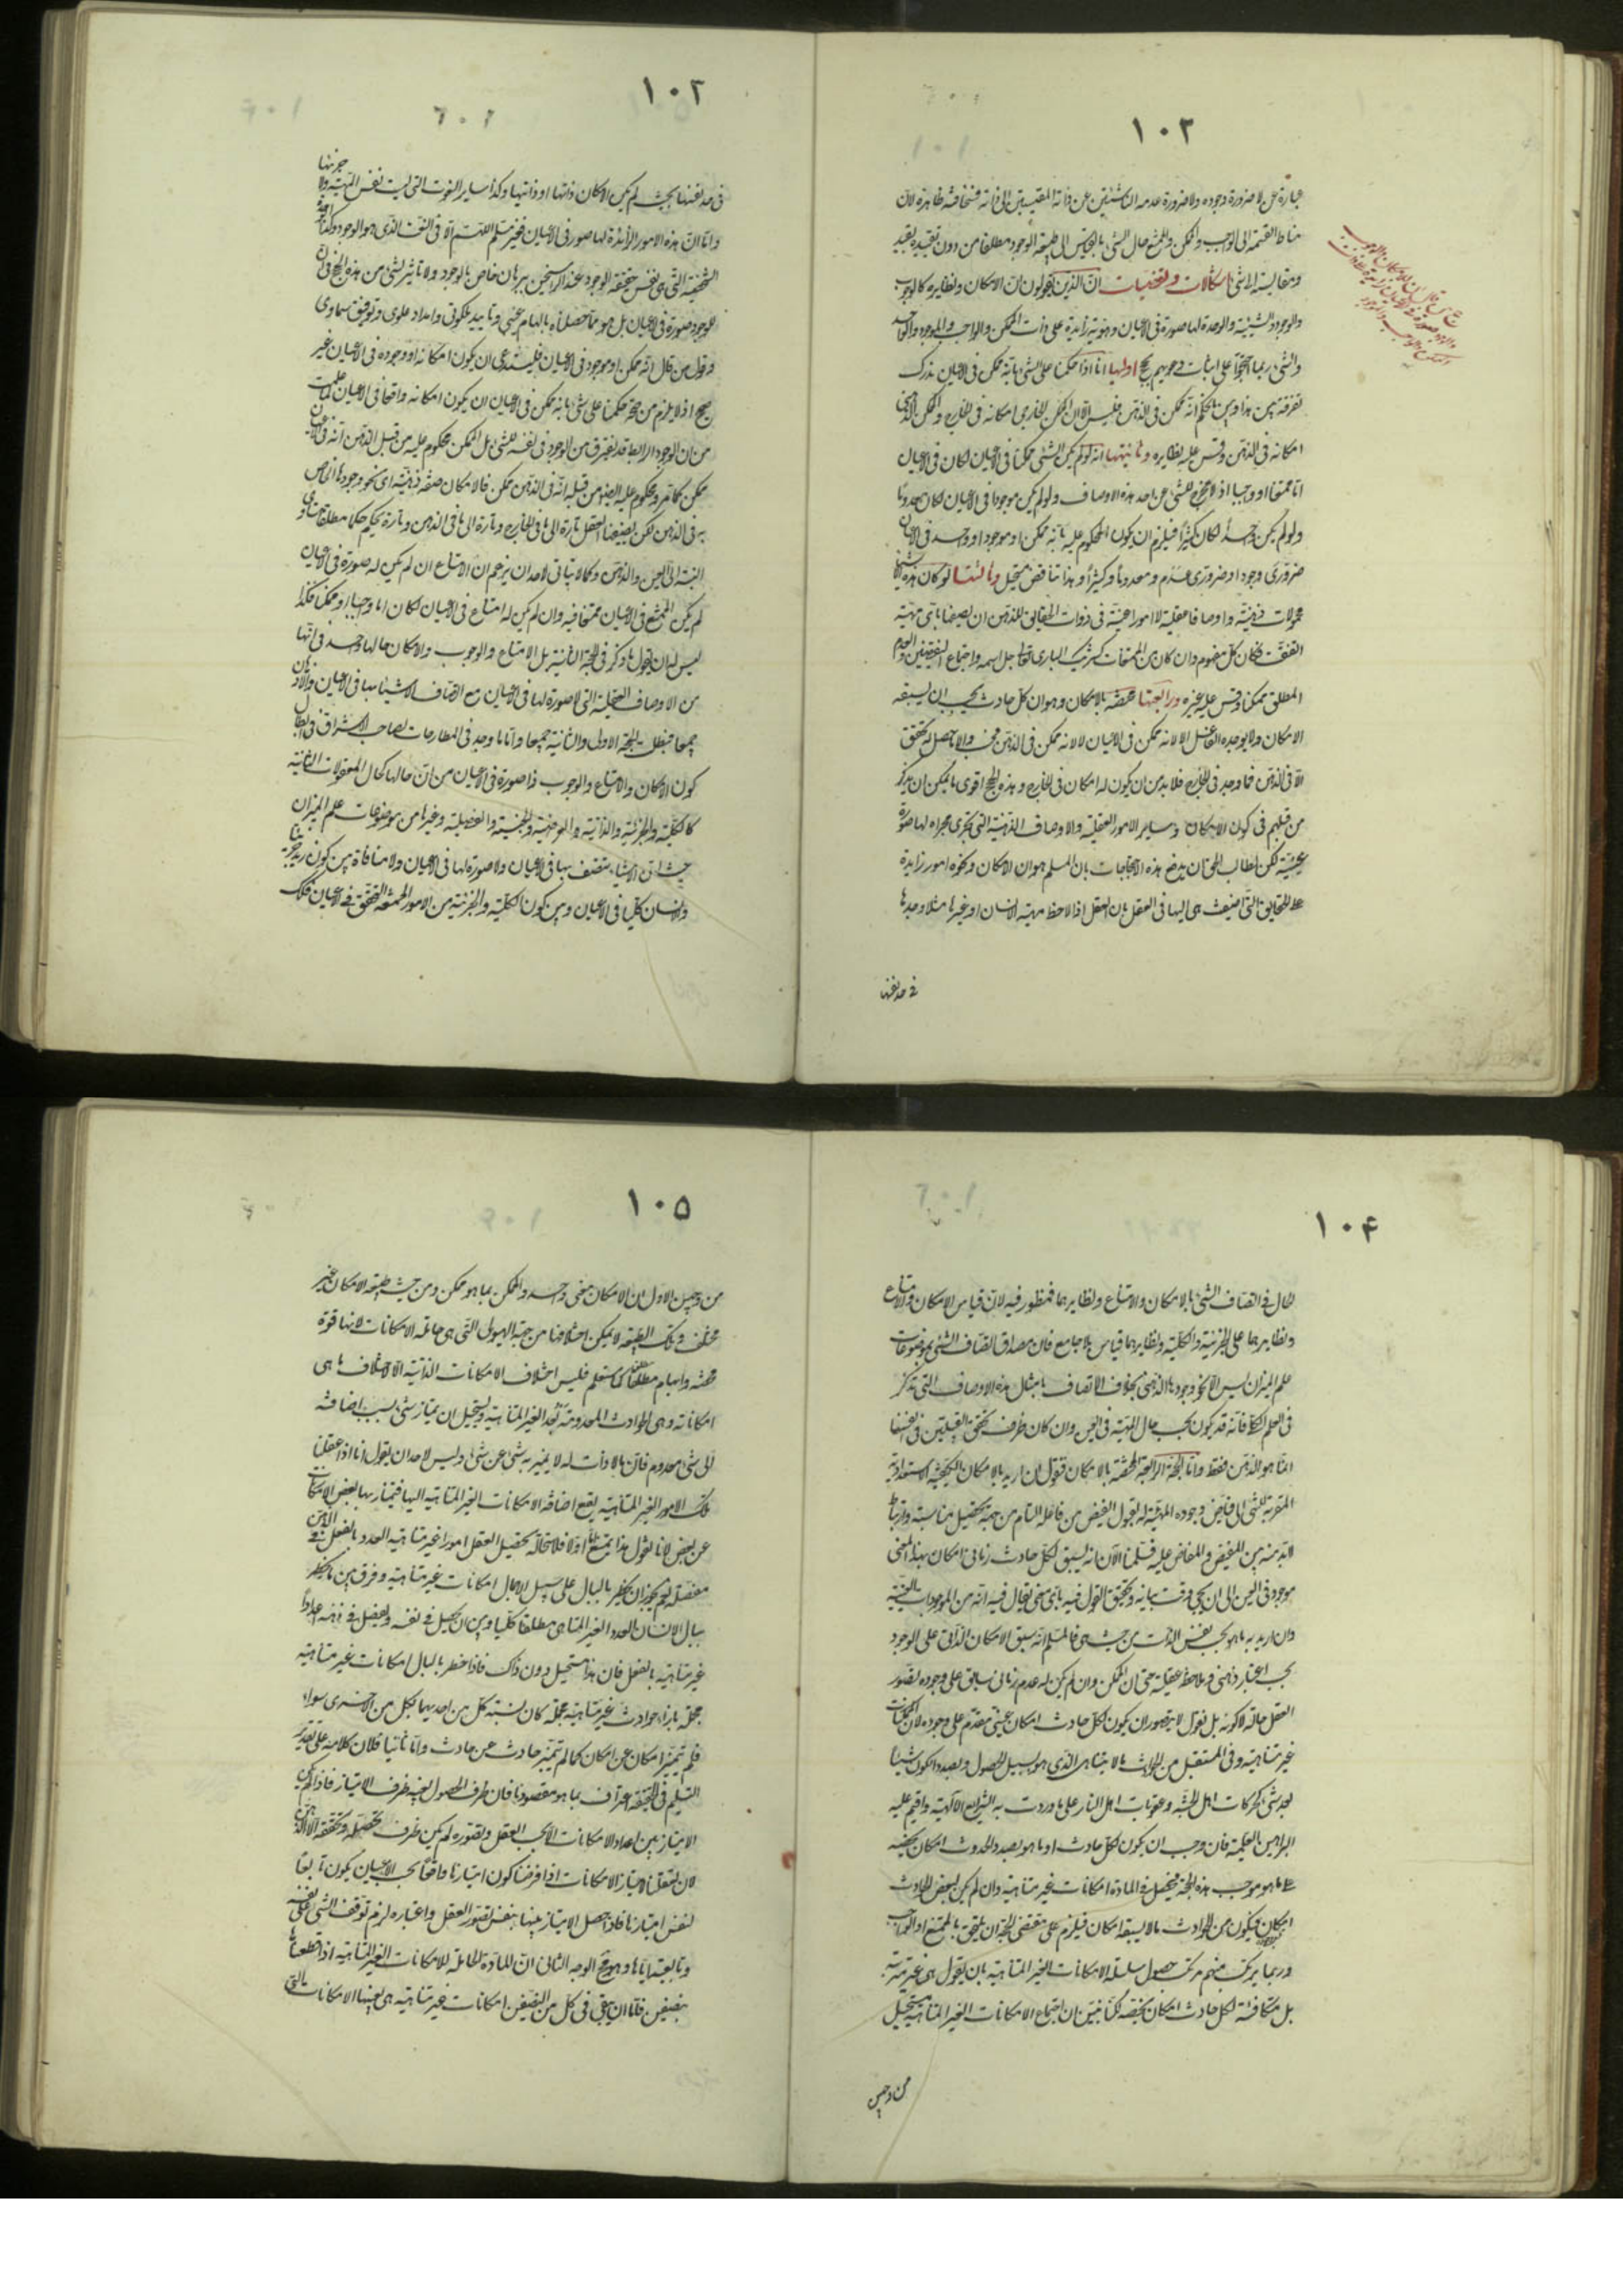 ١٠٢
عبارة عن لا ضرورة وجوده ولا ضرورة عدمه الناشئتين عن ذاته المقيستين الى ذاته فسخافته ظاهرة لان
مناط القسمة الى الواجب والممكن والممتنع حال الشيء بالقياس الى طبيعة الوجود مطلقا من دون تقييده بقيد
ومقايسته الى شيء اشكالات وتفصيات ان الذين يقولون ان الامكان ونظايره كالوجوب
والوجود والشيئية والوحدة لها صورة في الاعيان وهوية زايدة على ذات الممكن والواجب والموجود والواحد
والشيء ربما احتجوا على اثبات دعويهم بحجج اوليها انا اذا حكمنا على الشيء بانه ممكن في الاعيان ندرك
تفرقة بين هذا وبين الحكم انه ممكن في الذهن فليس الا ان الممكن الخارجي امكانه في الخارج والممكن الذهني
امكانه في الذهن وقس عليه نظايره وثانيتها انه لو لم يكن الشيء ممكنا في الاعيان لكان في الاعيان
اما ممتنعا او واجبا اذ لا مخرج للشيء عن احد هذه الاوصاف ولو لم يكن موجودا في الاعيان لكان معدوما
ولو لم يكن واحدا لكان كثيرا فيلزم ان يكون المحكوم عليه بانه ممكن او موجود او واحد في الاعيان
ضروري وجود او ضروري عدم ومعدوما وكثيرا وهذا تناقض مستحيل وثالثتها لو كان هذه الاشياء
محمولات ذهنية واوصافا عقلية لا امورا عينية في ذوات الحقايق للذهن ان يضيفها باي مهية
اتفقت فكان كل مفهوم وان كان من الممتنعات كشريك الباري تعالى جل اسمه واجتماع النقيضين والعدم
المطلق ممكنا وقس عليه غيره ورابعتها مختصة بالامكان وهو ان كل حادث يجب ان يسبقه
الامكان ولا يوجده الفاعل الا لانه ممكن في الاعيان لا لانه ممكن في الذهن فحسب والا ما حصل له تحقق
الا في الذهن فما وجد في الخارج فلا بد من ان يكون له امكان في الخارج وهذه الحجج اقوى ما يمكن ان يذكر
من قبلهم في كون الامكان وساير الامور العقلية والاوصاف الذهنية التي تجري مجراه لها صورة
عينية لكن لطالب الحق ان يدفع هذه الاحتجاجات بان المسلم هو ان الامكان ونحوه امور زايدة
على الحقايق التي اضيفت هي اليها في العقل بان العقل اذا لاحظ مهية الانسان او غيرها مثلا وجدها
في حد نفسها
١٠٣
في حد نفسها بحيث لم يكن الامكان ذاتها او ذاتيها وكذا ساير النعوت التي ليست نفس المهية ولا جزئها
واما ان هذه الامور الزائدة لها صور في الاعيان فغير مسلم اللهم الا في النعت الذي هو الوجود وكذا
الشخصية التي هي نفس حقيقة الوجود عند الراسخين ببرهان خاص بالوجود ولا تأثير لشيء من هذه الحجج في ان
للوجود صورة في الاعيان بل هو مما حصل لنا بالهام غيبي وتاييد ملكوتي وامداد علوي وتوفيق سماوي
وقول من قال انه ممكن او موجود في الاعيان فيستدعي ان يكون امكانه او وجوده في الاعيان غير
صحيح اذ لا يلزم من صحة حكمنا على شيء بانه ممكن في الاعيان ان يكون امكانه واقعا في الاعيان لما علمت
من ان الوجود الرابط قد يفترق من الوجود في نفسه للشيء بل الممكن محكوم عليه من قبل الذهن انه في الاعيان
ممكن كما مر ومحكوم عليه ايضا من قبله انه في الذهن ممكن فالامكان صفة ذهنية اي نحو وجودها الخاص
به في الذهن لكن يضيفها العقل تارة الى ما في الخارج وتارة الى ما في الذهن وتارة يحكم حكما مطلقا متساوي
النسبة الى العين والذهن وكما لا يتأتى لاحد ان يزعم ان الامتناع ان لم يكن له صورة في الاعيان
لم يكن الممتنع في الاعيان ممتنعا فيه وان لم يكن له امتناع في الاعيان لكان اما واجبا او ممكنا فكذا
ليس له ان يقول ما ذكر في الحجة الثانية بل الامتناع والوجوب والامكان حالها واحد في انها
من الاوصاف العقلية التي لا صورة لها في الاعيان مع اتصاف الاشياء بها في الاعيان والاذهان
جميعا فبطلت الحجة الاولى والثانية جميعا واما ما وجد في المطارحات لصاحب الاشراق في ابطال
كون الامكان والامتناع والوجوب ذا صورة في الاعيان من ان حالها كحال المعقولات الثانية
كالكلية والجزئية والذاتية والعرضية والجنسية والفصلية وغيرها من موضوعات علم الميزان
حيث ان الاشياء تتصف بها في الاعيان ولا صورة لها في الاعيان ولا منافاة بين كون زيد جزئيا
والانسان كليا في الاعيان وبين كون الكلية والجزئية من الامور الممتنعة التحقق في الاعيان فكذلك
١٠٤
الحال في اتصاف الشيء بالامكان والامتناع ونظايرهما فمنظور فيه لان قياس الامكان والامتناع
ونظايرهما على الجزئية والكلية ونظايرهما قياس بلا جامع فان مصداق اتصاف الشيء بموضوعات
علم الميزان ليس الا نحو وجودها الذهني بخلاف الاتصاف بامثال هذه الاوصاف التي تذكر
في العلم الكلي فانه قد يكون بحسب حال المهية في العين وان كان ظرف تحقق القبيلتين في انفسها
انما هو الذهن فقط واما الحجة الرابعة المختصة بالامكان فنقول ان اريد بالامكان الكيفية الاستعدادية
المقربة للشيء الى فياض وجوده المهيئة له لقبول الفيض من فاعله التام من جهة تحصيل مناسبة وارتباط
لا بد منه بين المفيض والمفاض عليه فسلمنا الآن انه يسبق لكل حادث زماني امكان بهذا المعنى
موجود في العين الى ان يجيء وقت بيانه وتحقيق القول فيه باي معنى يقال فيه انه من الموجودات العينية
وان اريد به ما هو بحسب نفس الذات من حيث هي فالمسلم انه سبق الامكان الذاتي على الوجود
بحسب اعتبار ذهني وملاحظة عقلية حتى ان الممكن وان لم يكن له عدم زماني سابق على وجوده تصور
العقل حاله لا كونه بل نقول لا يتصور ان يكون لكل حادث امكان عيني متقدم على وجوده لان الممكنات
غير متناهية وفي المستقبل من الحوادث ما لا يتناهى الذي هو بسبيل الحصول وبصدد الكون شيئا
بعد شيء كحركات اهل الجنة وعقوبات اهل النار على ما وردت به الشرايع الالهية واقيم عليه
البراهين العقلية فان وجب ان يكون لكل حادث او ما هو بصدد الحدوث امكان يخصه
على ما هو موجب هذه الحجة فيحصل في المادة امكانات غير متناهية وان لم يكن لبعض الحوادث
امكان فيكون من الحوادث ما لا يسبقه امكان فيلزم على مقتضى الحجة ان يلتحق بالممتنع او الواجب
وربما يرتكب منهم مرتكب حصول سلسلة الامكانات الغير المتناهية بان يقول هي غير مترتبة
بل متكافئة لكل حادث امكان يخصه لكنا نبين ان اجتماع الامكانات الغير المتناهية مستحيل
من وجهين
١٠٥
من وجهين الاول ان الامكان معنى واحد والممكن بما هو ممكن ومن حيث طبيعة الامكان غير
مختلف وتلك الطبيعة لا يمكن اختلافها من جهة الهيولى التي هي حاملة الامكانات لانها قوة
محضة وابهام مطلق كما ستعلم فليس اختلاف الامكانات الذاتية الا لاختلاف ما هي
امكاناته وهي الحوادث المعدومة بعد الغير المتناهية ويستحيل ان يمتاز شيء بسبب اضافته
الى شيء معدوم فان ما لا ذات له لا يتميز به شيء عن شيء وليس لاحد ان يقول انا اذا عقلنا
تلك الامور الغير المتناهية يقع اضافة الامكانات الغير المتناهية اليها فيمتاز بها بعض الامكانات
عن بعض لانا نقول هذا ممتنع اما اولا فلاستحالة تحصيل العقل امورا غير متناهية العدد بالفعل في الذهن
مفصلة نعم يجوز ان يخطر بالبال على سبيل الاجمال امكانات غير متناهية وفرق بين ما يخطر
ببال الانسان العدد الغير المتناهي مطلقا كليا وبين ان يحصل في نفسه ويفصل في ذهنه اعدادا
غير متناهية بالفعل فان هذا مستحيل دون ذاك فاذا خطر بالبال امكانات غير متناهية
مجملة بازاء حوادث غير متناهية مجملة كان نسبة كل من احديهما بكل من الاخرى سواء
فلم يتميز امكان عن امكان كما لم يتميز حادث عن حادث واما ثانيا فلان كلامنا على تقدير
التسليم في الحقيقة اعتراف بما هو مقصودنا فان ظرف الحصول بعينه ظرف الامتياز فاذا لم يكن
الامتياز بين اعداد الامكانات الا بحسب العقل وتصوره لم يكن ظرف تحصله وتحققه الا الذهن
لان تعقلنا لامتياز الامكانات اذا فرضنا كون امتيازنا واقعا بحسب الاعيان يكون تابعا
لنفس امتيازها فاذا حصل الامتياز بينها بنفس تصور العقل واعتباره لزم توقف الشيء على نفسه
وتابعيته اياها وهو محال الوجه الثاني ان المادة الحاملة للامكانات الغير المتناهية اذا قطعناها
بنصفين فاما ان يبقى في كل من النصفين امكانات غير متناهية هي بعينها الامكانات التي